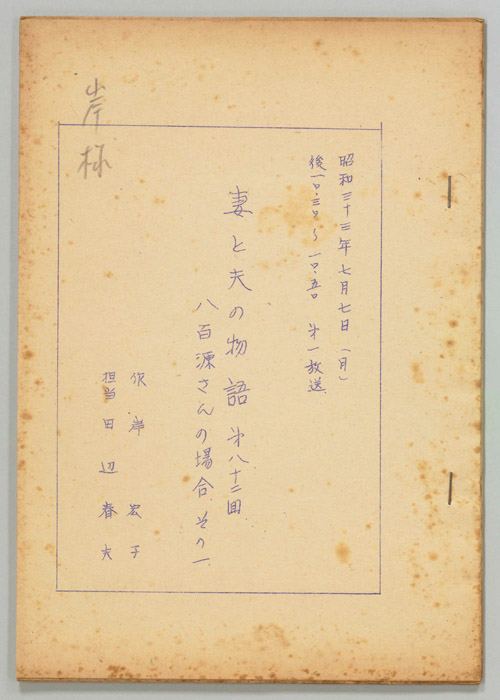 昭和三十三年七月七日（月）
後一〇・三〇～一〇・五〇　第一放送
妻と夫の物語　第八十二回
八百源さんの場合　その一
作　岸　宏子
担当　田辺春夫
岸様